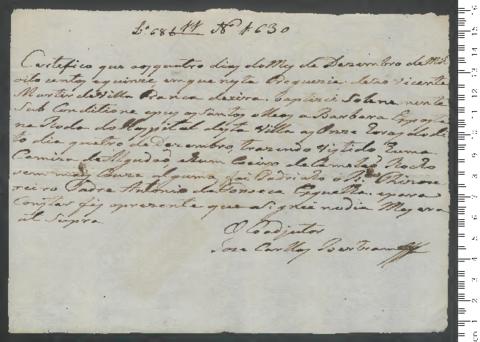 Nº 1630
Certifico que aos quatro dias do Mez de Dezembro de Mil
oito centos e quinze em que nesta Freguezia de São Vicente
Martir de Villa Franca de xira baptizei Solenemente
Sub Conditione e puz os Santos oleos a Barbara Exposta
na Roda do Hospital desta Villa as Onze horas do
dito dia quatro de Dezembro, trazendo vistido huma
Camiza de Algudão e hum Coeiro de
sem mais Couza alguma foi Padrinho o
reiro Padre Antonio da Fonceca e para
Constar fiz o prezente que asignei no dia Mez era
ut Supra
O Coadjutor
Joze Carllos Bertram